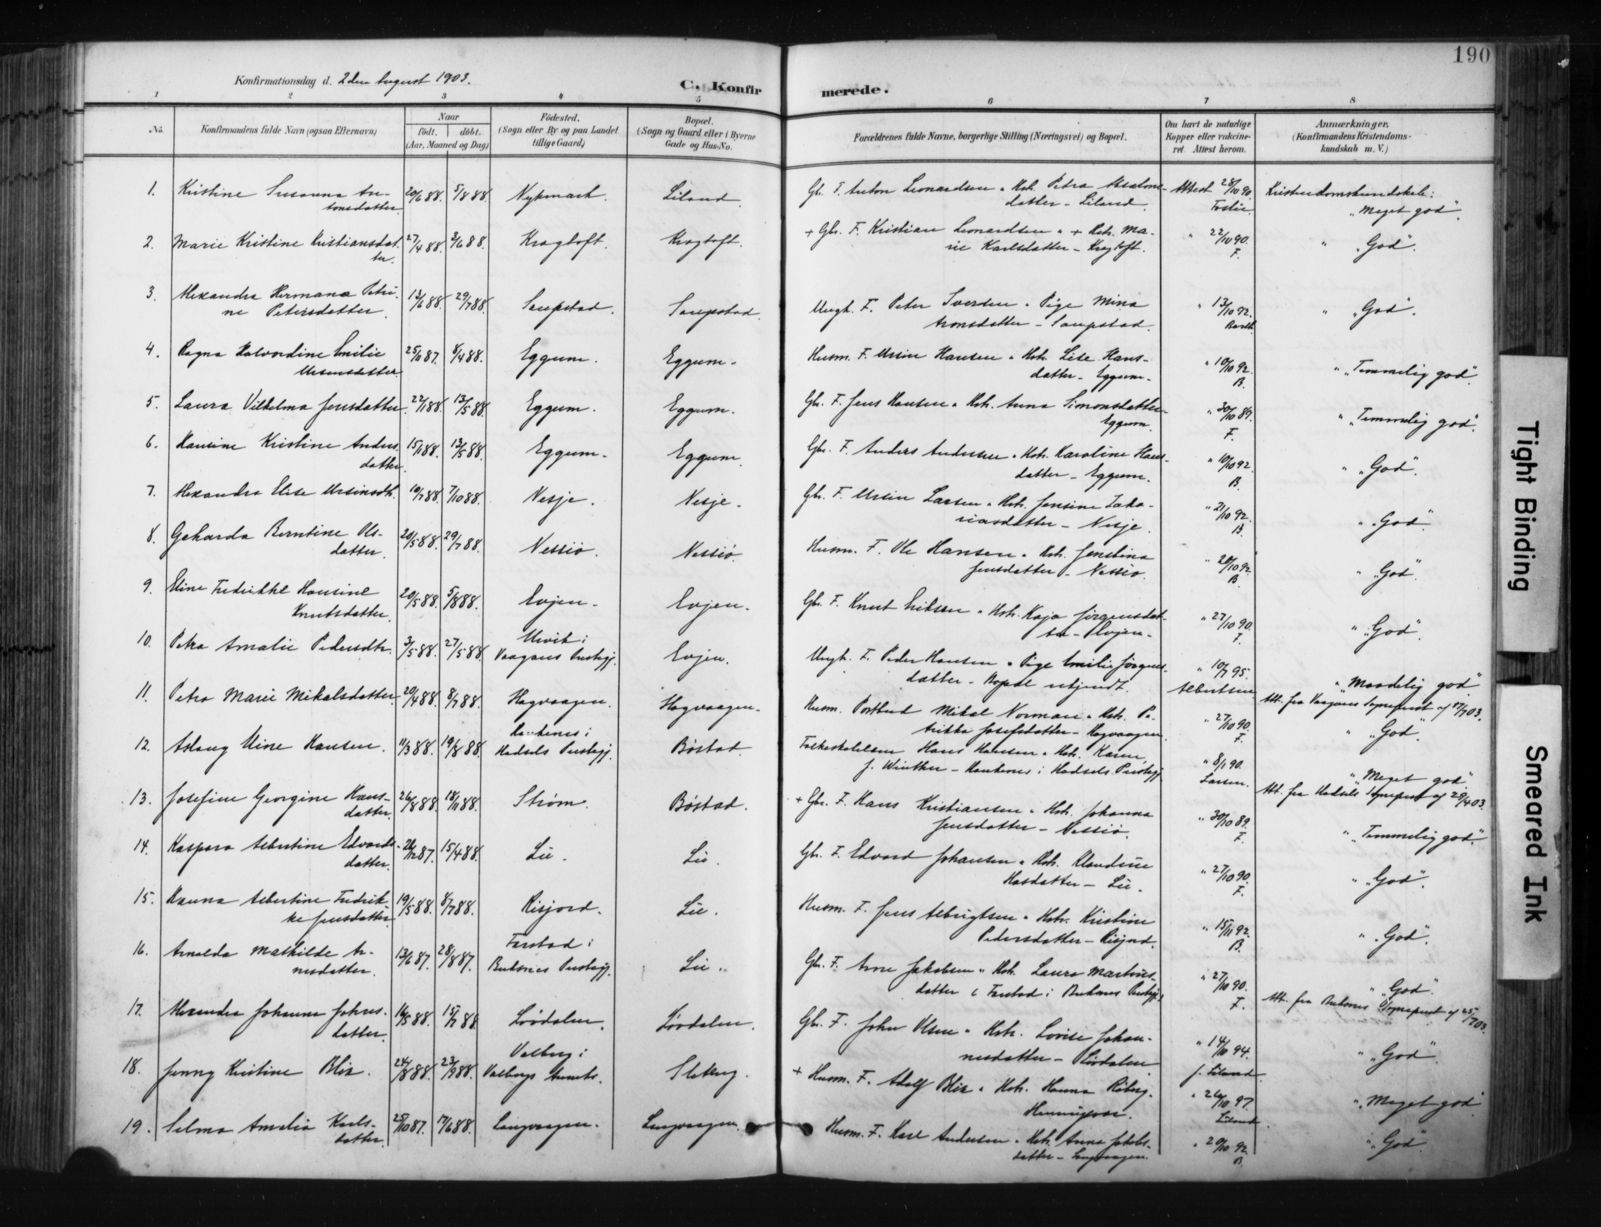 190
Konfirmationsdag d. 2den August 1903.
C. Konfirmerede.
1 2 3 4 5 6 7 8
No.
Konfirmandens fulde Navn (ogsaa Efternavn)
Naar
født. døbt.
(Aar, Maaned og Dag)
Fødested.
(Sogn eller By og paa Landet
tillige Gaard)
Bopæl.
(Sogn og Gaard eller i Byerne
Gade og Hus-No.
Forældrenes fulde Navne, borgerlige Stilling (Næringsvei) og Bopæl.
Om havt de naturlige
Kopper eller vaccine-
ret. Attest herom.
Anmærkninger.
(Konfirmandens Kristendoms-
kundskab m. V.)
1. Kristine Susanna An-
tonsdatter 20/6 88. 5/8 88. Nykmark. Liland. Gb. F. Anton Leonardsen Petra
datter – Liland. Attest 28/10 90. Kristendomskundskab:
"Meget god".
2. Marie Kristine Kristiansdat-
ter. 27/4 88. 3/6 88. Kragtoft. Kragtoft. + Gbr. F. Kristian Leonardsen + Kh. Ma-
rie Karlsdatter – Kragtoft. " 22/10 90. F. " "God".
3. Alexandra Hermana Petri-
ne Petersdatter. 13/6 88. 29/7 88. Saupstad. Saupstad. Ungk. F. Peter Iversen Pige Mina
Aronsdatter – Saupstad. " 13/10 92. " "God".
4. Ragna Halvordine Emilie
Ursinsdatter. 25/11 87. 8/4 88. Eggum. Eggum. Husm. F. Ursin Hansen Kh. Lise Hans-
datter – Eggum. " 10/10 92. B. " "Temmelig god".
5. Laura Vilhelma Jensdatter. 22/1 88. 13/5 88. Eggum. Eggum. Gb. F. Jens Hansen Kh. Anna Simonsdatter
Eggum. " 30/10 89. F. " "Temmelig god".
6. Hansine Kristine Anders
datter. 15/1 88. 13/5 88. Eggum. Eggum. Gbr. F. Anders Andersen Kh. Karoline Hans-
datter – Eggum. " 10/10 92. B. " "God".
7. Alexandra Elise Ursinsdt. 10/7 88. 7/10 88. Nesje. Nesje. Gb. F. Ursin Larsen Kh. Jensine Zaka-
riasdatter – Nesje. " 21/10 92. B " "God".
8. Geharda Berntine Ols-
datter. 20/5 88. 29/7 88. Nessiø. Nessiø. Husm. F. Ole Hansen Kh. Jenstina
Jensdatter – Nessiø. " 20/10 92. B " "God".
9. Eline Fredrikke Hansine
Knutsdatter. 20/5 88. 5/8 88. Evjen. Evjen. Gb. F. Knut Eriksen Kh. Kaja Jørgensdat-
ter – Evjen. " 27/10 90. F. " "God".
10. Petra Amalie Pedersdtr. 3/5 88. 27/5 88. i
Vaagans Prestgj. Evjen. Ungk. F. Peder Hansen Pige Emilie Jørgens-
datter – Bopæl ukjendt. " 10/7 95.
Albertsen "Maadelig god".
Att. fra Vaagans Sogneprest af 17/7 03.
11. Petra Marie Mikalsdatter. 20/4 88. 8/7 88. Hagvaagen. Hagvaagen. Husm. Postbud Mikal Norman Kh. Pe-
trikka Josefsdatter – Hagvaagen. " 27/10 90. F. " "God".
12. Aslaug Eline Hansen. 11/3 88. 19/8 88. i
Hadsels Prestgj. Bøstad. Folkeskolelærer Hans Hansen Kh. Karen
f. Winther – i Hadsels Prestgj. " 8/1 90.
Larsen. "Meget god"
Att. fra Hadsels Sogneprest af 29/4 03.
13. Josefine Georgine Hans-
datter. 26/8 88. 18/11 88. Strøm. Bøstad. + Gbr. F. Hans Kristiansen Kh. Johanna
Jensdatter – Nessiø. " 30/10 89. F. " "Temmelig god".
14. Kaspara Albertine Edvards-
datter. 26/12 87. 15/4 88. Lie. Lie. Gb. F. Edvard Johansen Kh. Klaudine
datter – Lie. " 27/10 90. F. " "God".
15. Hanna Albertine Fredrik-
ke Jensdatter. 19/5 88. 8/7 88. Risjord. Lie. Husm. F. Jens Albrigtsen Kh. Kristine
Pedersdatter – Risjord. " 15/11 92. B " "God".
16. Arnolda Mathilde Ar-
nesdatter. 13/6 87. 28/8 87. Farstad i
Buksnes Prestgj. Lie. Gb. F. Arne Jakobsen Kh. Laura
datter Farstad i Buksnes Prestgj. " 27/10 90. F. "God".
Att. fra Buksnes Sogneprest af 25/7 03.
17. Alexandra Johanna Johns-
datter. 16/5 88. 15/7 88. Lövdalen. Lövdalen. Gb. F. John Olsen Kh. Lovise Johan-
nesdatter – Lövdalen " 14/10 94.
J. Liland. " "God".
18. Jenny Kristine Blix. 24/8 88. 23/9 88. Valberg i
Valbergs Annex. Sletteng. + Husm. F. Adolf Blix Kh. Hanna
Henningsvær. " 26/10 97.
Liland. " "Meget god"
19. Selma Amalia Karls-
datter. 25/10 87. 17/6 88. Langvaagen. Langvaagen. Husm. F. Karl Andersen Kh. Anna Jakobs-
datter – Langvaagen. " 20/10 92. B. " "God".
Tight Binding
Smeared Ink